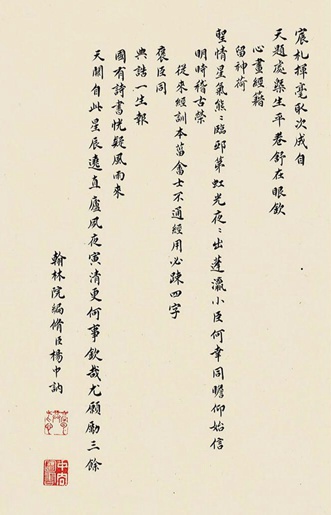 宸札揮毫取次成自
天題處槩生平卷舒在眼欽
心畫經籍
留神荷
聖情星氣熊〻臨邸第虹光夜〻出蓬瀛小臣何幸同瞻仰始信
明時稽古榮
從來經訓本菑畬士不通經用必疎四字
褒臣同
典誥一生報
國有詩書恍疑風雨來
天闕自此星辰遶直廬夙夜寅清更何事欽哉尤願勵三餘
翰林院編脩臣楊中訥